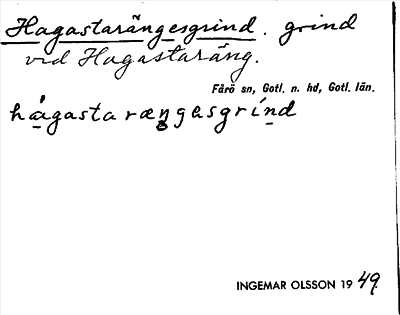 Hagastarängesgrind. grind
vid Hagastaräng.
Fårö sn, Gotl. n. hd, Gotl. län.
hágasta ræŋgesgrínd
INGEMAR OLSSON 1949